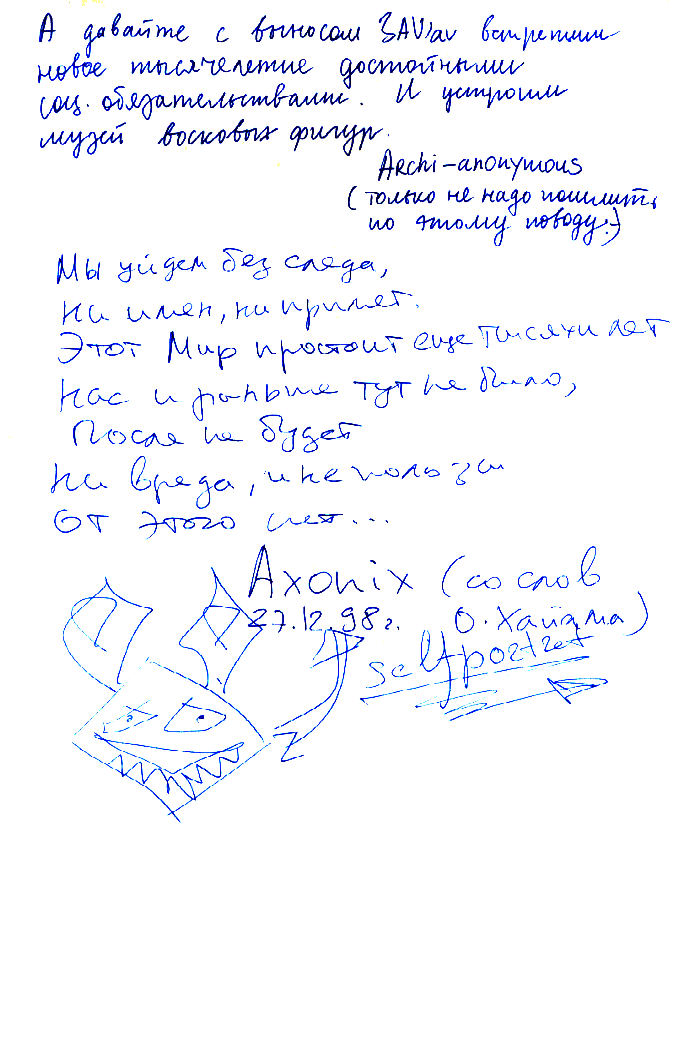 А давайте с выносом ЗАV'av встретим
новое тысячелетие достойными
соц. обязательствами. И устроим
музей восковых фигур.
Archi-anonymous
(только не надо пошлить
по этому поводу:)
Мы уйдем без следа,
ни имен, ни примет.
Этот Мир простоит еще тысячи лет
Нас и раньше тут не было,
После не будет
Ни вреда, и не пользы
От этого нет...
Axonix (со слов
27.12.98г. О. Хайяма)
selfportret